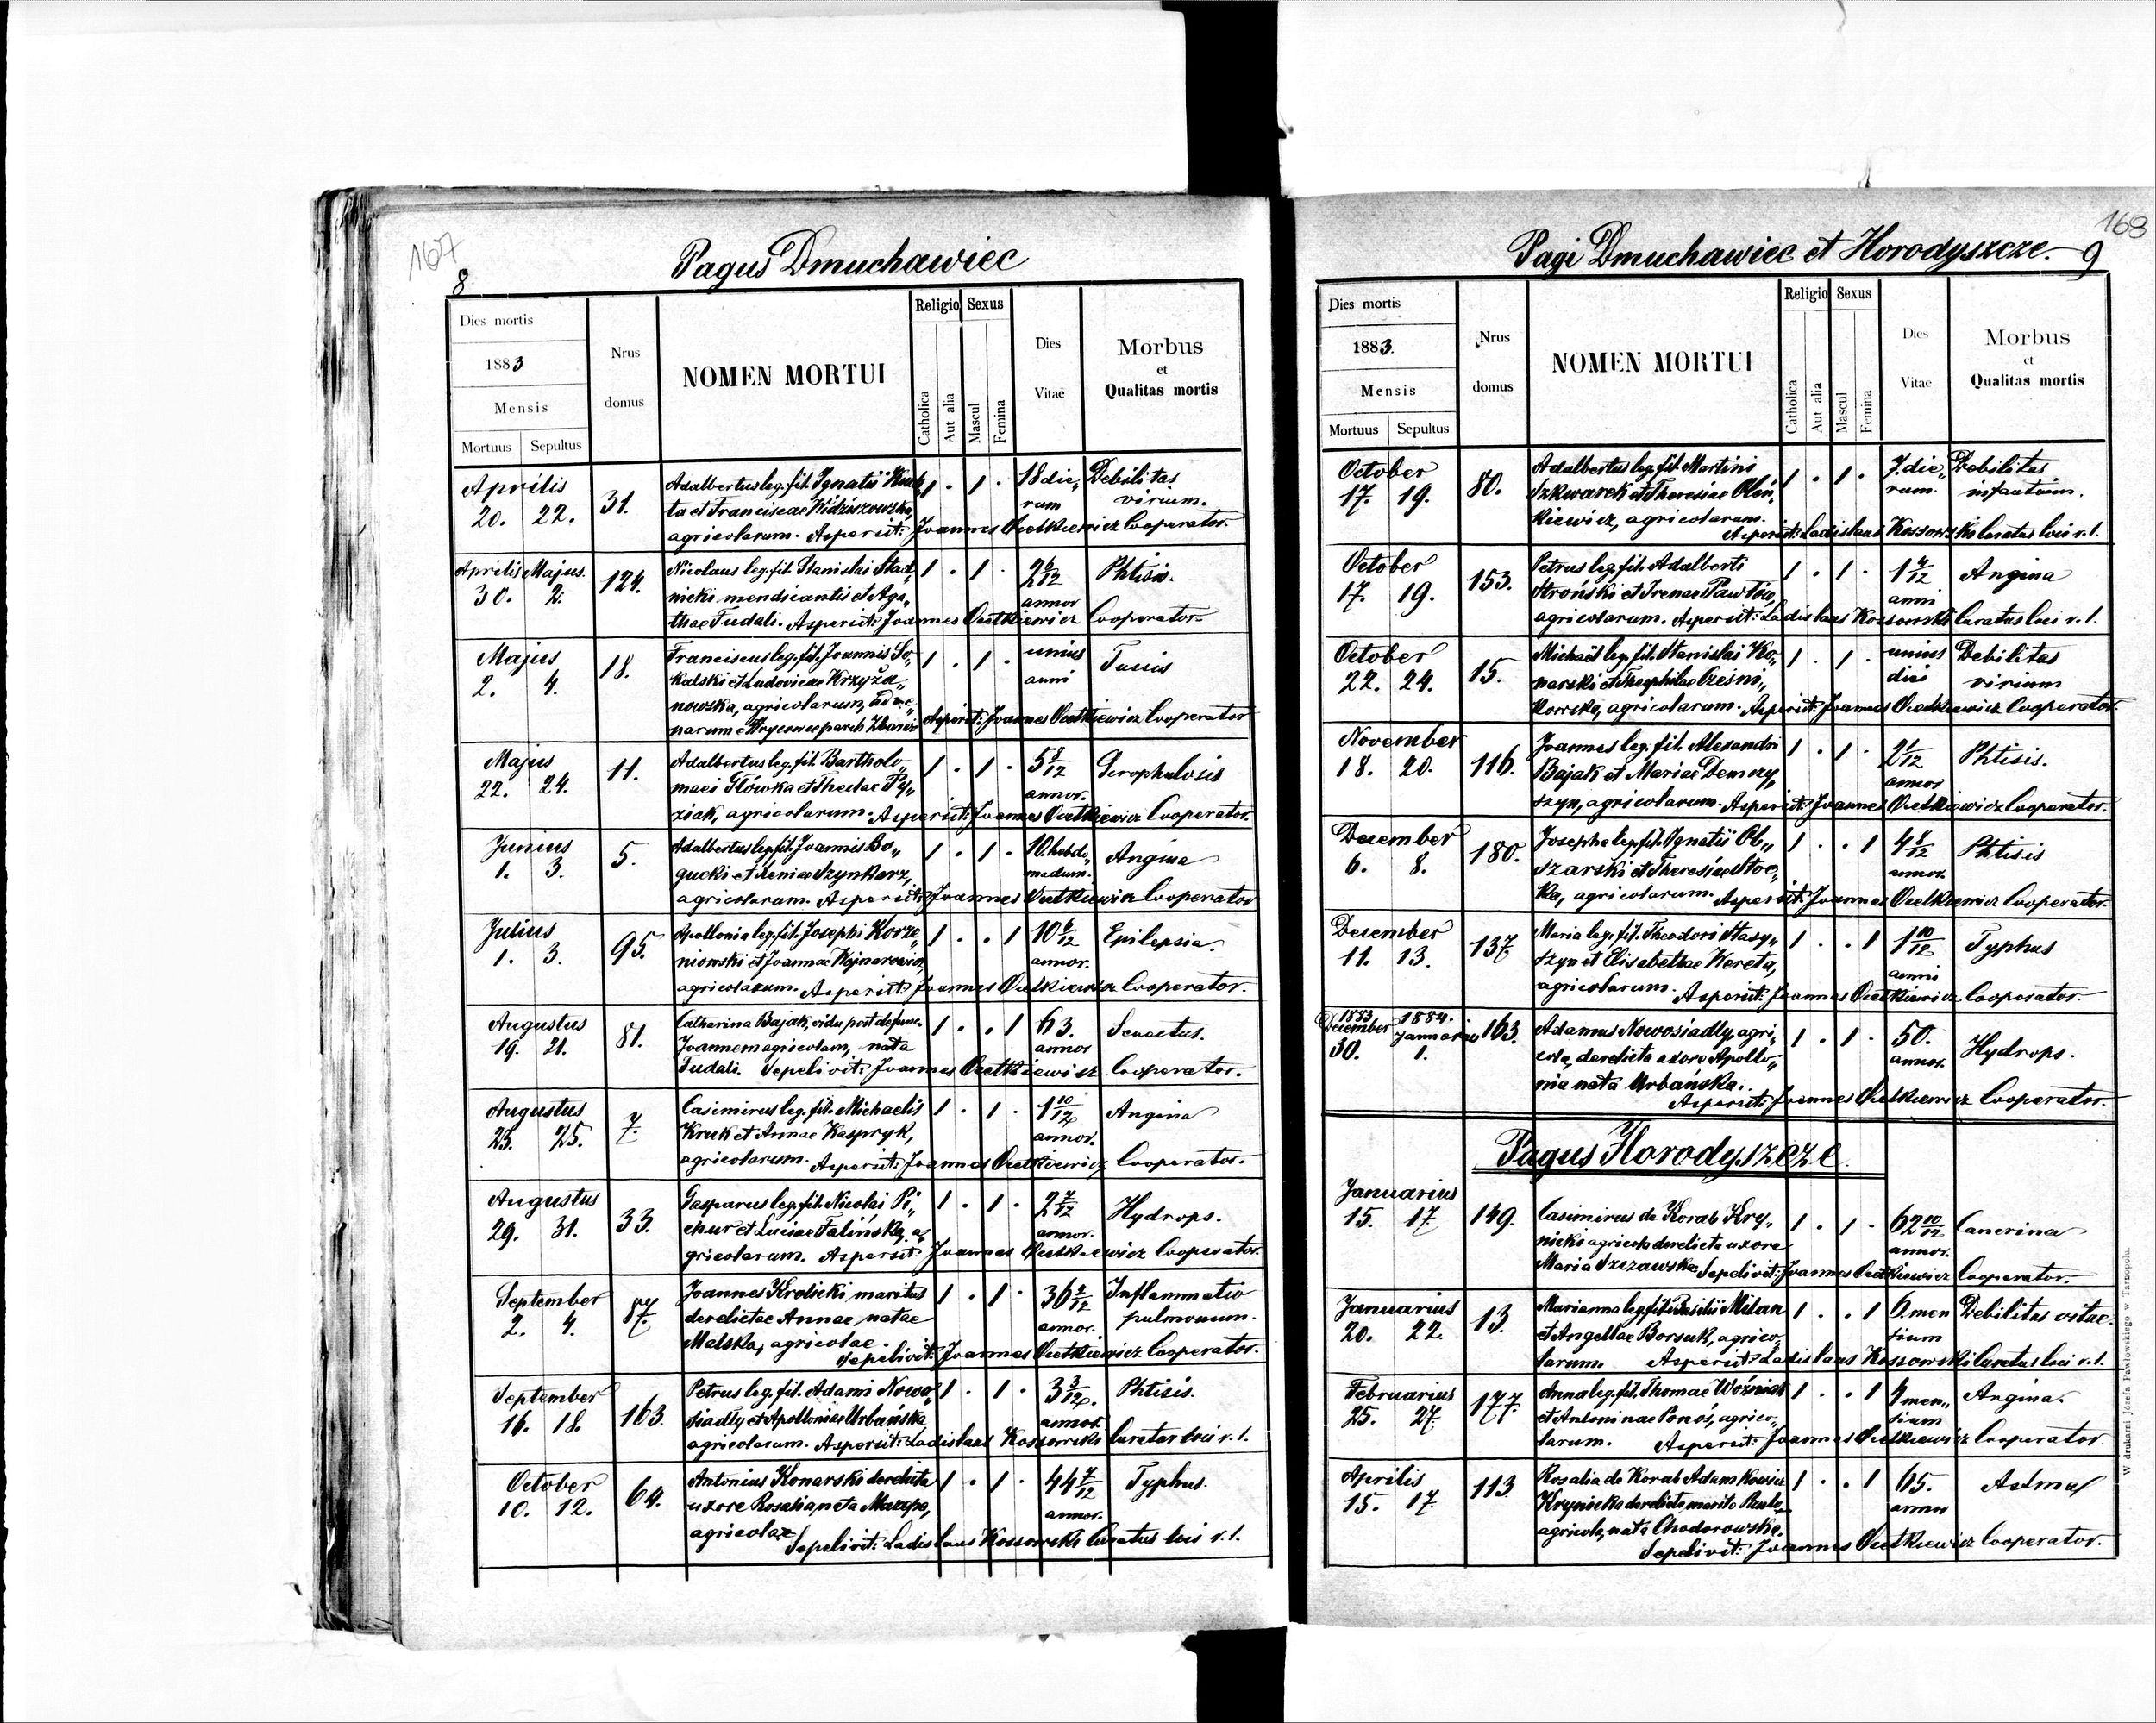 167
8
Pagus Dmuchawiec
Dies mortis
1883
Mensis
Mortuus Sepultus
Nrus domus
NOMEN MORTUI
Religio
Catholica
Aut alia
Sexus
Mascul
Femina
Dies Vitae
Morbus
et
Qualitas mortis
Aprilis
20. 22.
31.
Adalbertus leg. fil. Ignatii
ta et Franciscae
agricolarum. Aspersit: Joannes Ocetkiewicz Cooperator.
1 . 1 .
18 die„
rum
Debilitas
virium.
Aprilis Majus.
30. 2.
124.
Nicolaus leg. fil. Stanislai Stad„
nicki mendicantis et Aga„
thae Fudali. Aspersit: Joannes Ocetkiewicz Cooperator.
1 . 1 .
2 6/12
annor
Phtisis.
Majus
2. 4.
18.
Franciscus leg. fil. Joannis So„
kalski et Ludovicae Krzyża„
nowska, agricolarum,
narum e parch Zbaraż Aspersit: Joannes Ocetkiewicz Cooperator
1 . 1 .
unius
anni
Tussis
Majus
22. 24.
11.
Adalbertus leg. fil. Bartholo„
maei Główka et Theclae Py„
ziak, agricolarum. Aspersit: Joannes Ocetkiewicz Cooperator.
1 . 1 .
5 8/12
annor.
Scrophulosis
Junius
1. 3.
5.
Adalbertus leg. fil. Joannis Bo„
gucki et Xeniae Szynkarz,
agricolarum. Aspersit: Joannes Ocetkiewicz Cooperator
1 . 1 .
10. hebdo„
madum.
Angina
Julius
1. 3.
95.
Apollonia leg. fil. Josephi Korze„
niowski et Joannae Wojnarowicz,
agricolarum. Aspersit: Joannes Ocetkiewicz Cooperator.
1 . . 1
10 6/12
annor.
Epilepsia.
Augustus
19. 21.
81.
Catharina Bajak, vidua post defunc.
Joannem agricolam, nata
Fudali. Sepelivit: Joannes Ocetkiewicz Cooperator.
1 . . 1
63.
annor
Senectus.
Augustus
23. 25.
7.
Casimirus leg. fil. Michaelis
Kruk et Annae Kaspryk,
agricolarum. Aspersit: Joannes Ocetkiewicz Cooperator.
1 . 1 .
1 10/12
annor.
Angina
Augustus
29. 31.
33.
Gasparus leg. fil. Nicolai Pi„
chur et Luciae Falińska, a„
gricolarum. Aspersit: Joannes Ocetkiewicz Cooperator.
1 . 1 .
2 7/12
annor.
Hydrops.
September
2. 4.
87.
Joannes Krolicki maritus
derelictae Annae natae
Malska, agricolae.
Sepelivit: Joannes Ocetkiewicz Cooperator.
1 . 1 .
36 2/12
annor.
Inflammatio
pulmonum.
September
16. 18.
163.
Petrus leg. fil. Adami Nowo„
siadły et Apolloniae Urbańska
agricolarum. Aspersit: Ladislaus Kossowski Curatus loci r. l.
1 . 1 .
3 3/12.
annor.
Phtisis.
October
10. 12.
64.
Antonius Konarski derelicta
uxore Rosalia nata Mazepa,
agricolae Sepelivit: Ladislaus Kossowski Curatus loci r. l.
1 . 1 .
44 7/12
annor.
Typhus.
168
Pagi Dmuchawiec et Horodyszcze.
9
Dies mortis
1883.
Mensis
Mortuus Sepultus
Nrus domus
NOMEN MORTUI
Religio
Catholica
Aut alia
Sexus
Mascul
Femina
Dies Vitae
Morbus
et
Qualitas mortis
October
17. 19.
80.
Adalbertus leg. fil. Martini
Szkwarek et Theresiae Oleń„
kiewicz, agricolarum.
Aspersit: Ladislaus Kossowski Curatus loci r. l.
1 . 1 .
7. die„
rum.
Debilitas
infantum.
October
17. 19.
153.
Petrus leg. fil. Adalberti
Stroński et Irenae Pawłów,
agricolarum. Aspersit: Ladislaus Kossowski Curatus loci r. l.
1 . 1 .
1 4/12
anni
Angina
October
22. 24.
15.
Michaël leg. fil. Stanislai Ko„
narski et Theophilae Cześni„
kowska, agricolarum. Aspersit: Joannes Ocetkiewicz Cooperator.
1 . 1 .
unius
diei
Debilitas
virium
November
18. 20.
116.
Joannes leg. fil. Alexandri
Bajak et Mariae Demczy„
szyn, agricolarum. Aspersit: Joannes Ocetkiewicz Cooperator.
1 . 1 .
2 1/12
annor
Phtisis.
December
6. 8.
180.
Josepha leg. fil. Ignatii Ob„
szarski et Theresiae Stoc„
ka, agricolarum. Aspersit: Joannes Ocetkiewicz Cooperator.
1 . . 1
4 8/12
annor.
Phtisis
December
11. 13.
137
Maria leg. fil. Theodori Stasy„
szyn et Elisabethae Wereta,
agricolarum. Aspersit: Joannes Ocetkiewicz Cooperator.
1 . . 1
1 10/12
anni
Typhus
1883 1884.
December Januarius
30. 1.
163.
Adamus Nowosiadły, agri„
cola, derelicta uxore Apollo„
nia nata Urbańska.
Aspersit: Joannes Ocetkiewicz Cooperator.
1 . 1 .
50.
annor.
Hydrops.
Pagus Horodyszcze.
Januarius
15. 17
149.
Casimirus de Korab Kry„
nicki agricola derelicta uxore
Maria Szczawska. Sepelivit: Joannes Ocetkiewicz Cooperator.
1 . 1 .
62 10/12
annor.
Cancrina
Januarius
20. 22.
13.
Marianna leg. fil. Basilii Milan
et Angellae Borsuk, agrico„
larum. Aspersit: Ladislaus Kossowski Curatus loci r. l.
1 . . 1
6. men
sium
Debilitas vitae.
Februarius
25. 27.
177.
Anna leg. fil. Thomae Woźniak
et Antoninae Ponoś, agrico„
larum. Aspersit: Joannes Ocetkiewicz Cooperator.
1 . . 1
4 men„
sium
Angina.
Aprilis
15. 17.
113
Rosalia de Korab Adamkowicz
Krynicka derelicto marito Paulo
agricola, nata Chodorowska.
Sepelivit: Joannes Ocetkiewicz Cooperator.
1 . . 1
65.
annor
Astma
W drukarni Józefa Pawłowskiego w Tarnopolu.